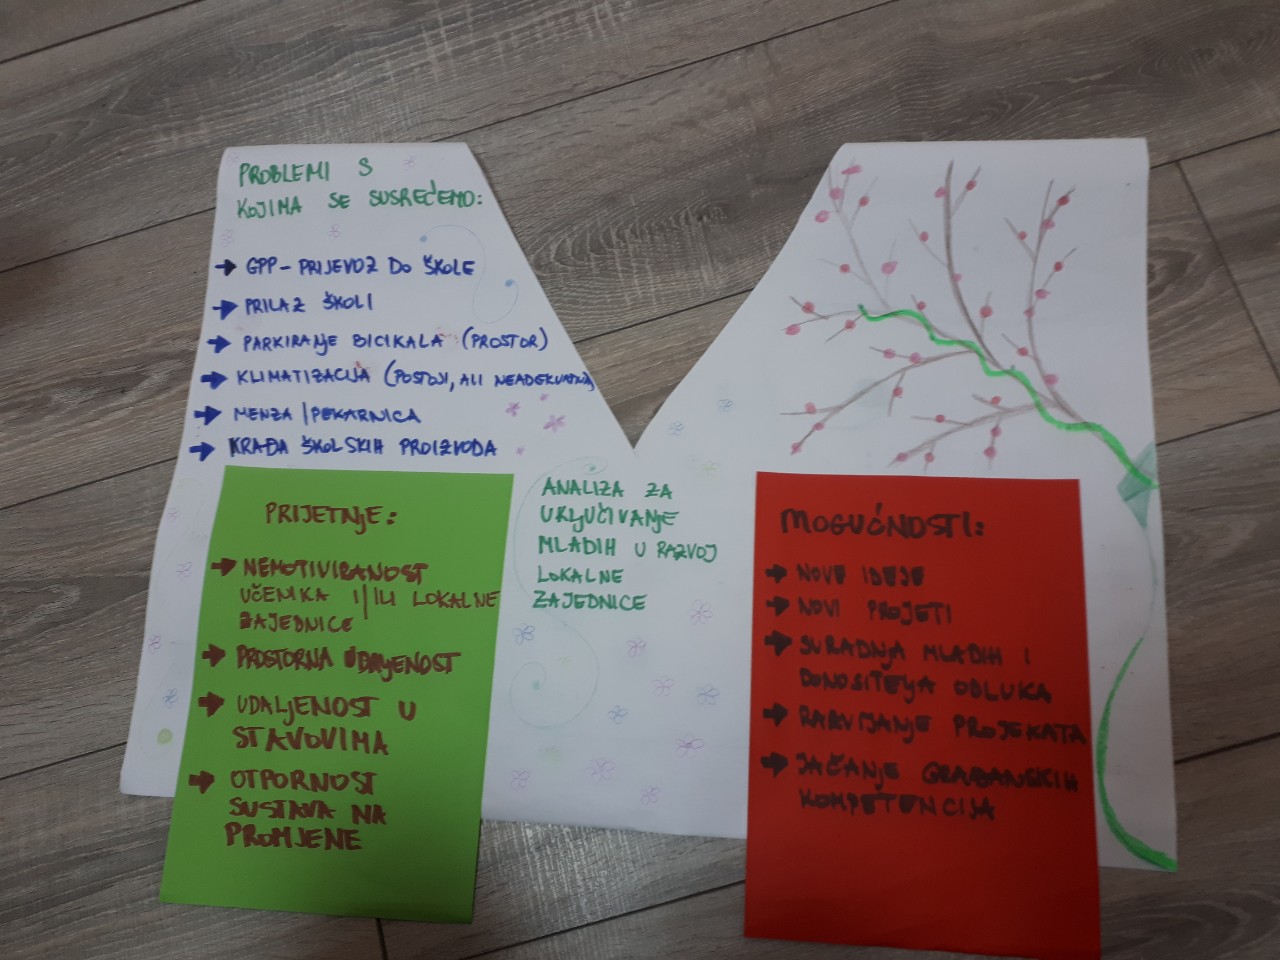 PROBLEMI S
KOJIMA SE SUSREĆEMO:
➔ GPP - PRIJEVOZ DO ŠKOLE
➔ PRILAZ ŠKOLI
➔ PARKIRANJE BICIKALA (PROSTOR)
➔ KLIMATIZACIJA (POSTOJI, ALI NEADEKVATNA)
➔ MENZA / PEKARNICA
➔ KRAĐA ŠKOLSKIH PROIZVODA
PRIJETNJE:
➔ NEMOTIVIRANOST
UČENIKA I/ILI LOKALNE
ZAJEDNICE
➔ PROSTORNA UDALJENOST
➔ UDALJENOST U
STAVOVIMA
➔ OTPORNOST
SUSTAVA NA
PROMJENE
ANALIZA ZA
UKLJUČIVANJE
MLADIH U RAZVOJ
LOKALNE
ZAJEDNICE
MOGUĆNOSTI:
➔ NOVE IDEJE
➔ NOVI PROJETI
➔ SURADNJA MLADIH I
DONOSITELJA ODLUKA
➔ RAZVIJANJE PROJEKATA
➔ JAČANJE GRAĐANSKIH
KOMPETENCIJA